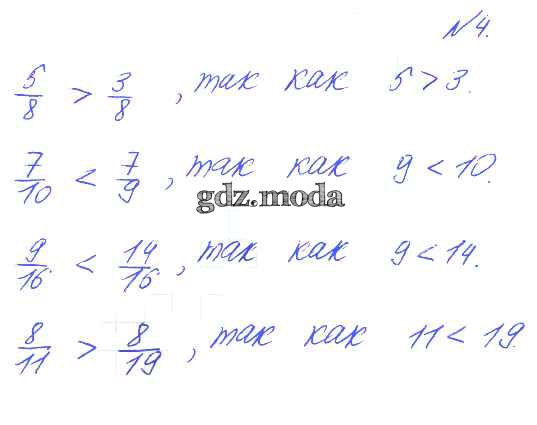 №4.
5/8 > 3/8, так как 5 > 3.
7/10 < 7/9, так как 9 < 10.
gdz.moda
9/16 < 14/16, так как 9 < 14.
8/11 > 8/19, так как 11 < 19.